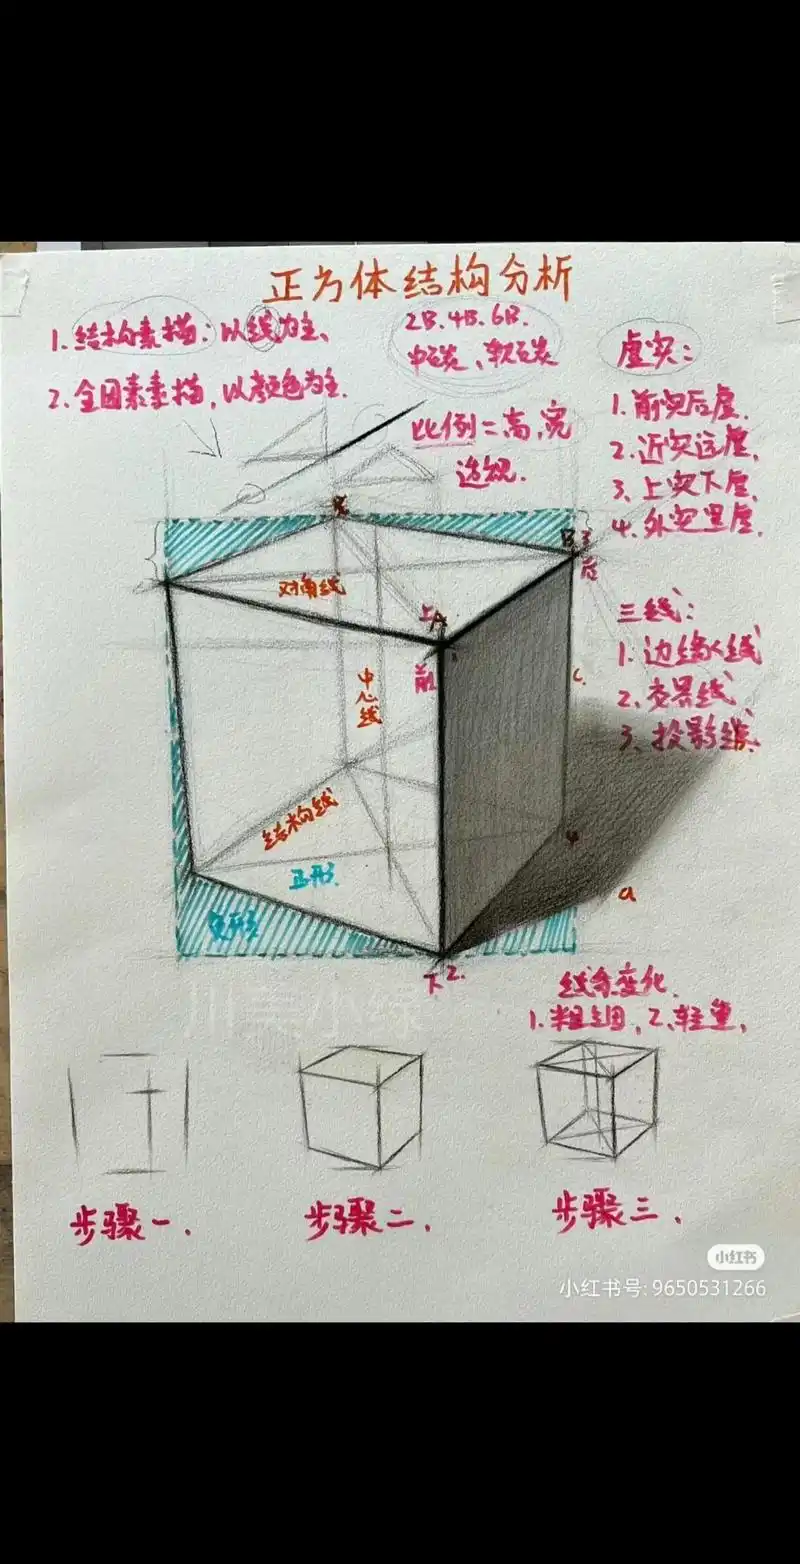 正方体结构分析
1.结构素描:以线为主、
2.全因素素描,以颜色为主.
2B.4B.6B.
中碳、软碳
比例=高、宽
透视.
虚实:
1.前实后虚.
2.近实远虚,
3.上实下虚,
4.外实里虚,
B 3
后
对角线
上 A
前
1
中心线
C.
三线:
1.边缘线
2.交界线
3、投影线
结构线
正形.
变形
4
a
下 2.
线条变化.
1.粗细,2.轻重,
川美小绿
步骤一.
步骤二.
步骤三.
小红书
小红书号: 9650531266